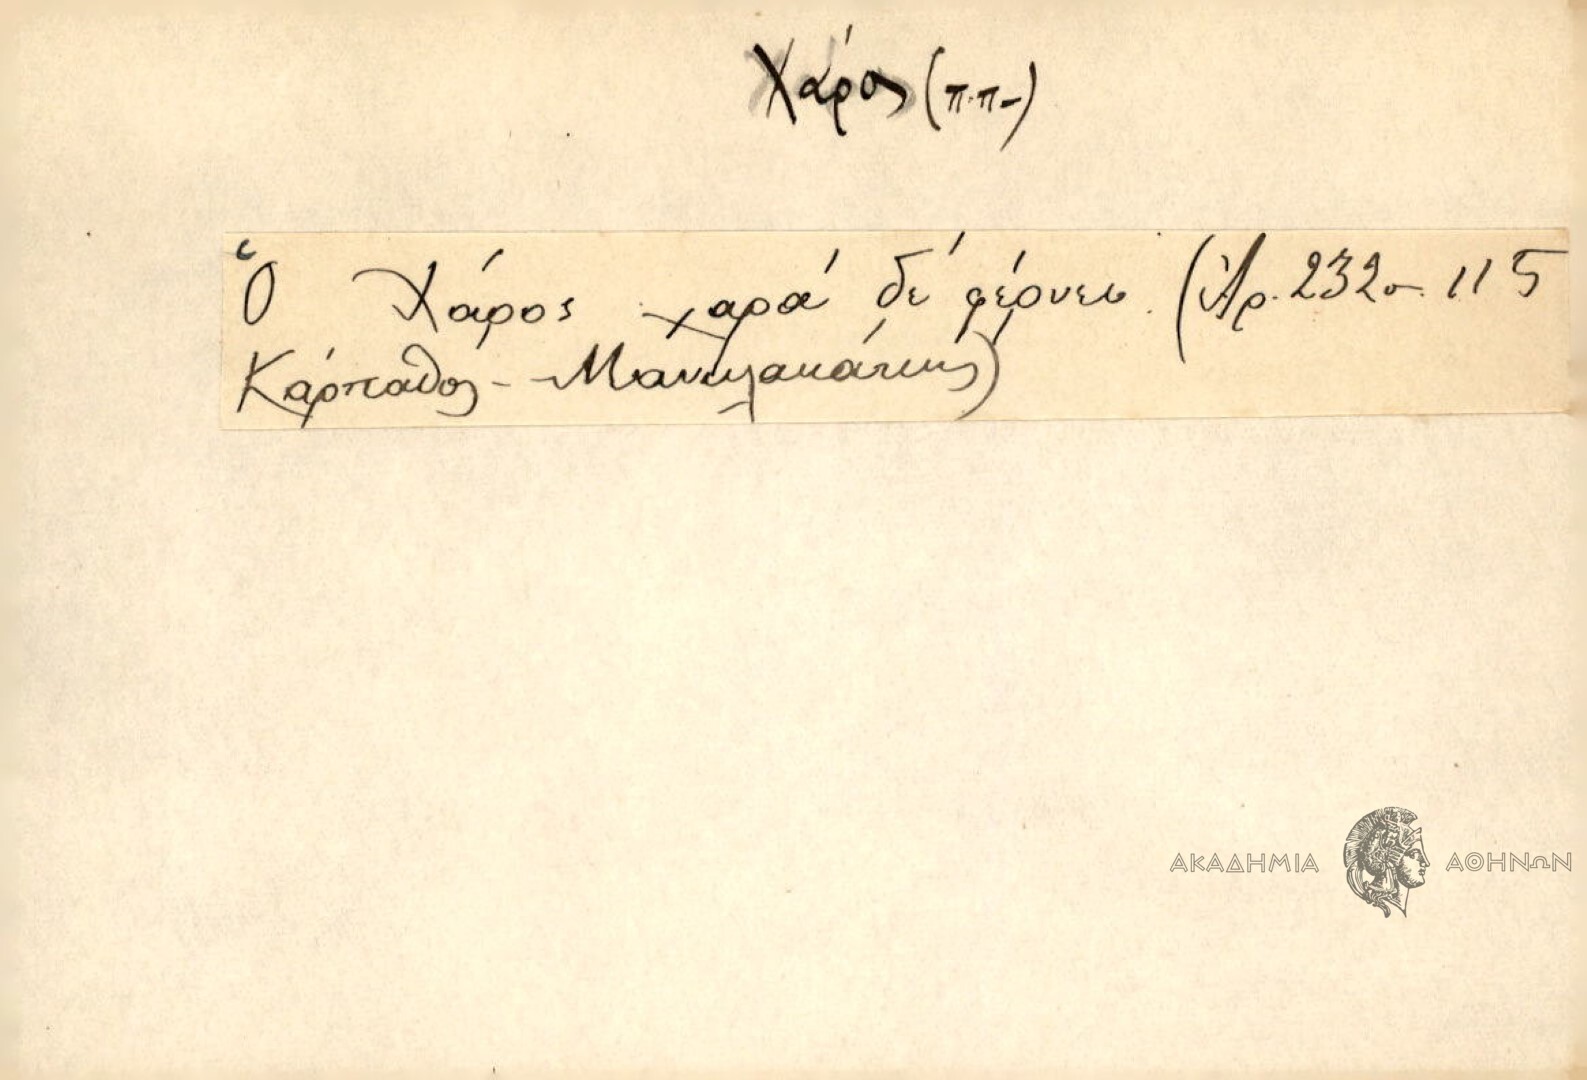 Χάρος (π.π-)
Ὁ Χάρος χαρά δέ φέρνει. (Ἀρ. 232 σ. 115
Κάρπαθος - Μανωλακάκης)
ΑΚΑΔΗΜΙΑ ΑΘΗΝΩΝ